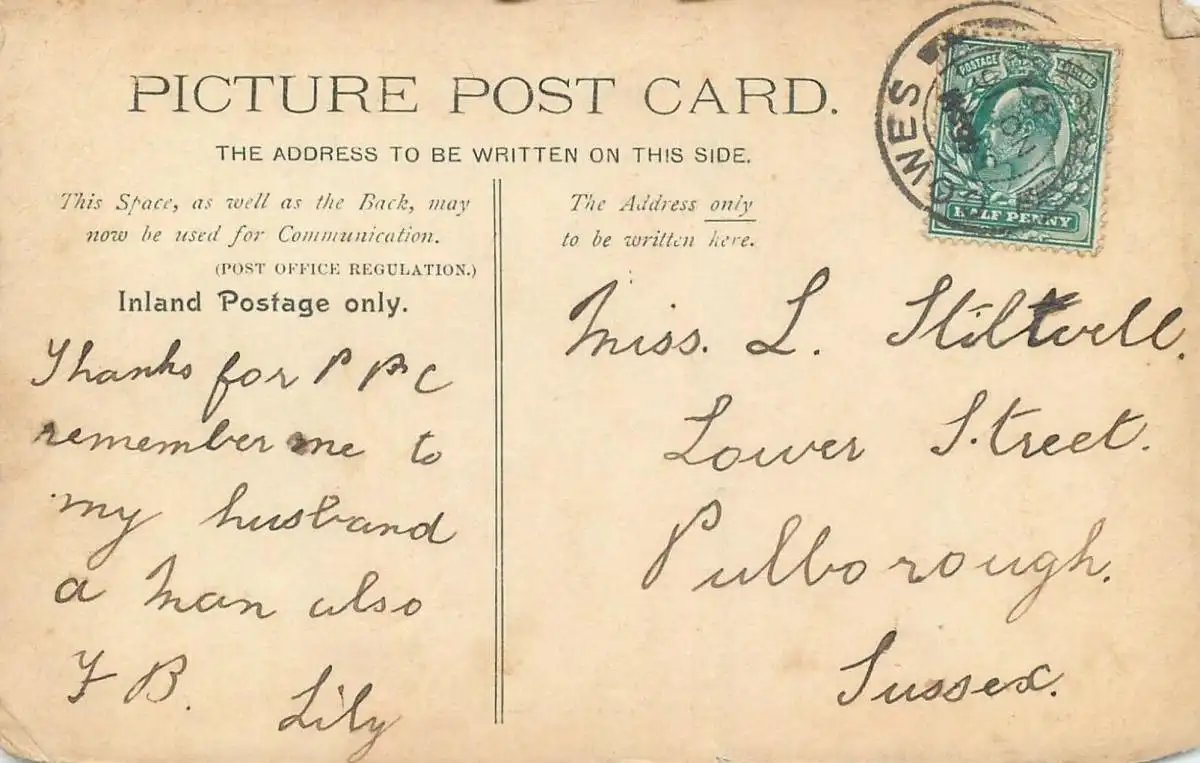 PICTURE POST CARD.
THE ADDRESS TO BE WRITTEN ON THIS SIDE.
This Space, as well as the Back, may
now be used for Communication.
(POST OFFICE REGULATION.)
Inland Postage only.
Thanks for P P C
remember me to
my husband
a Man also
F B. Lily
The Address only
to be written here.
Miss. L. Stiltwell.
Lower Street.
Pulborough.
Sussex.
COWES
POSTAGE
HALF PENNY